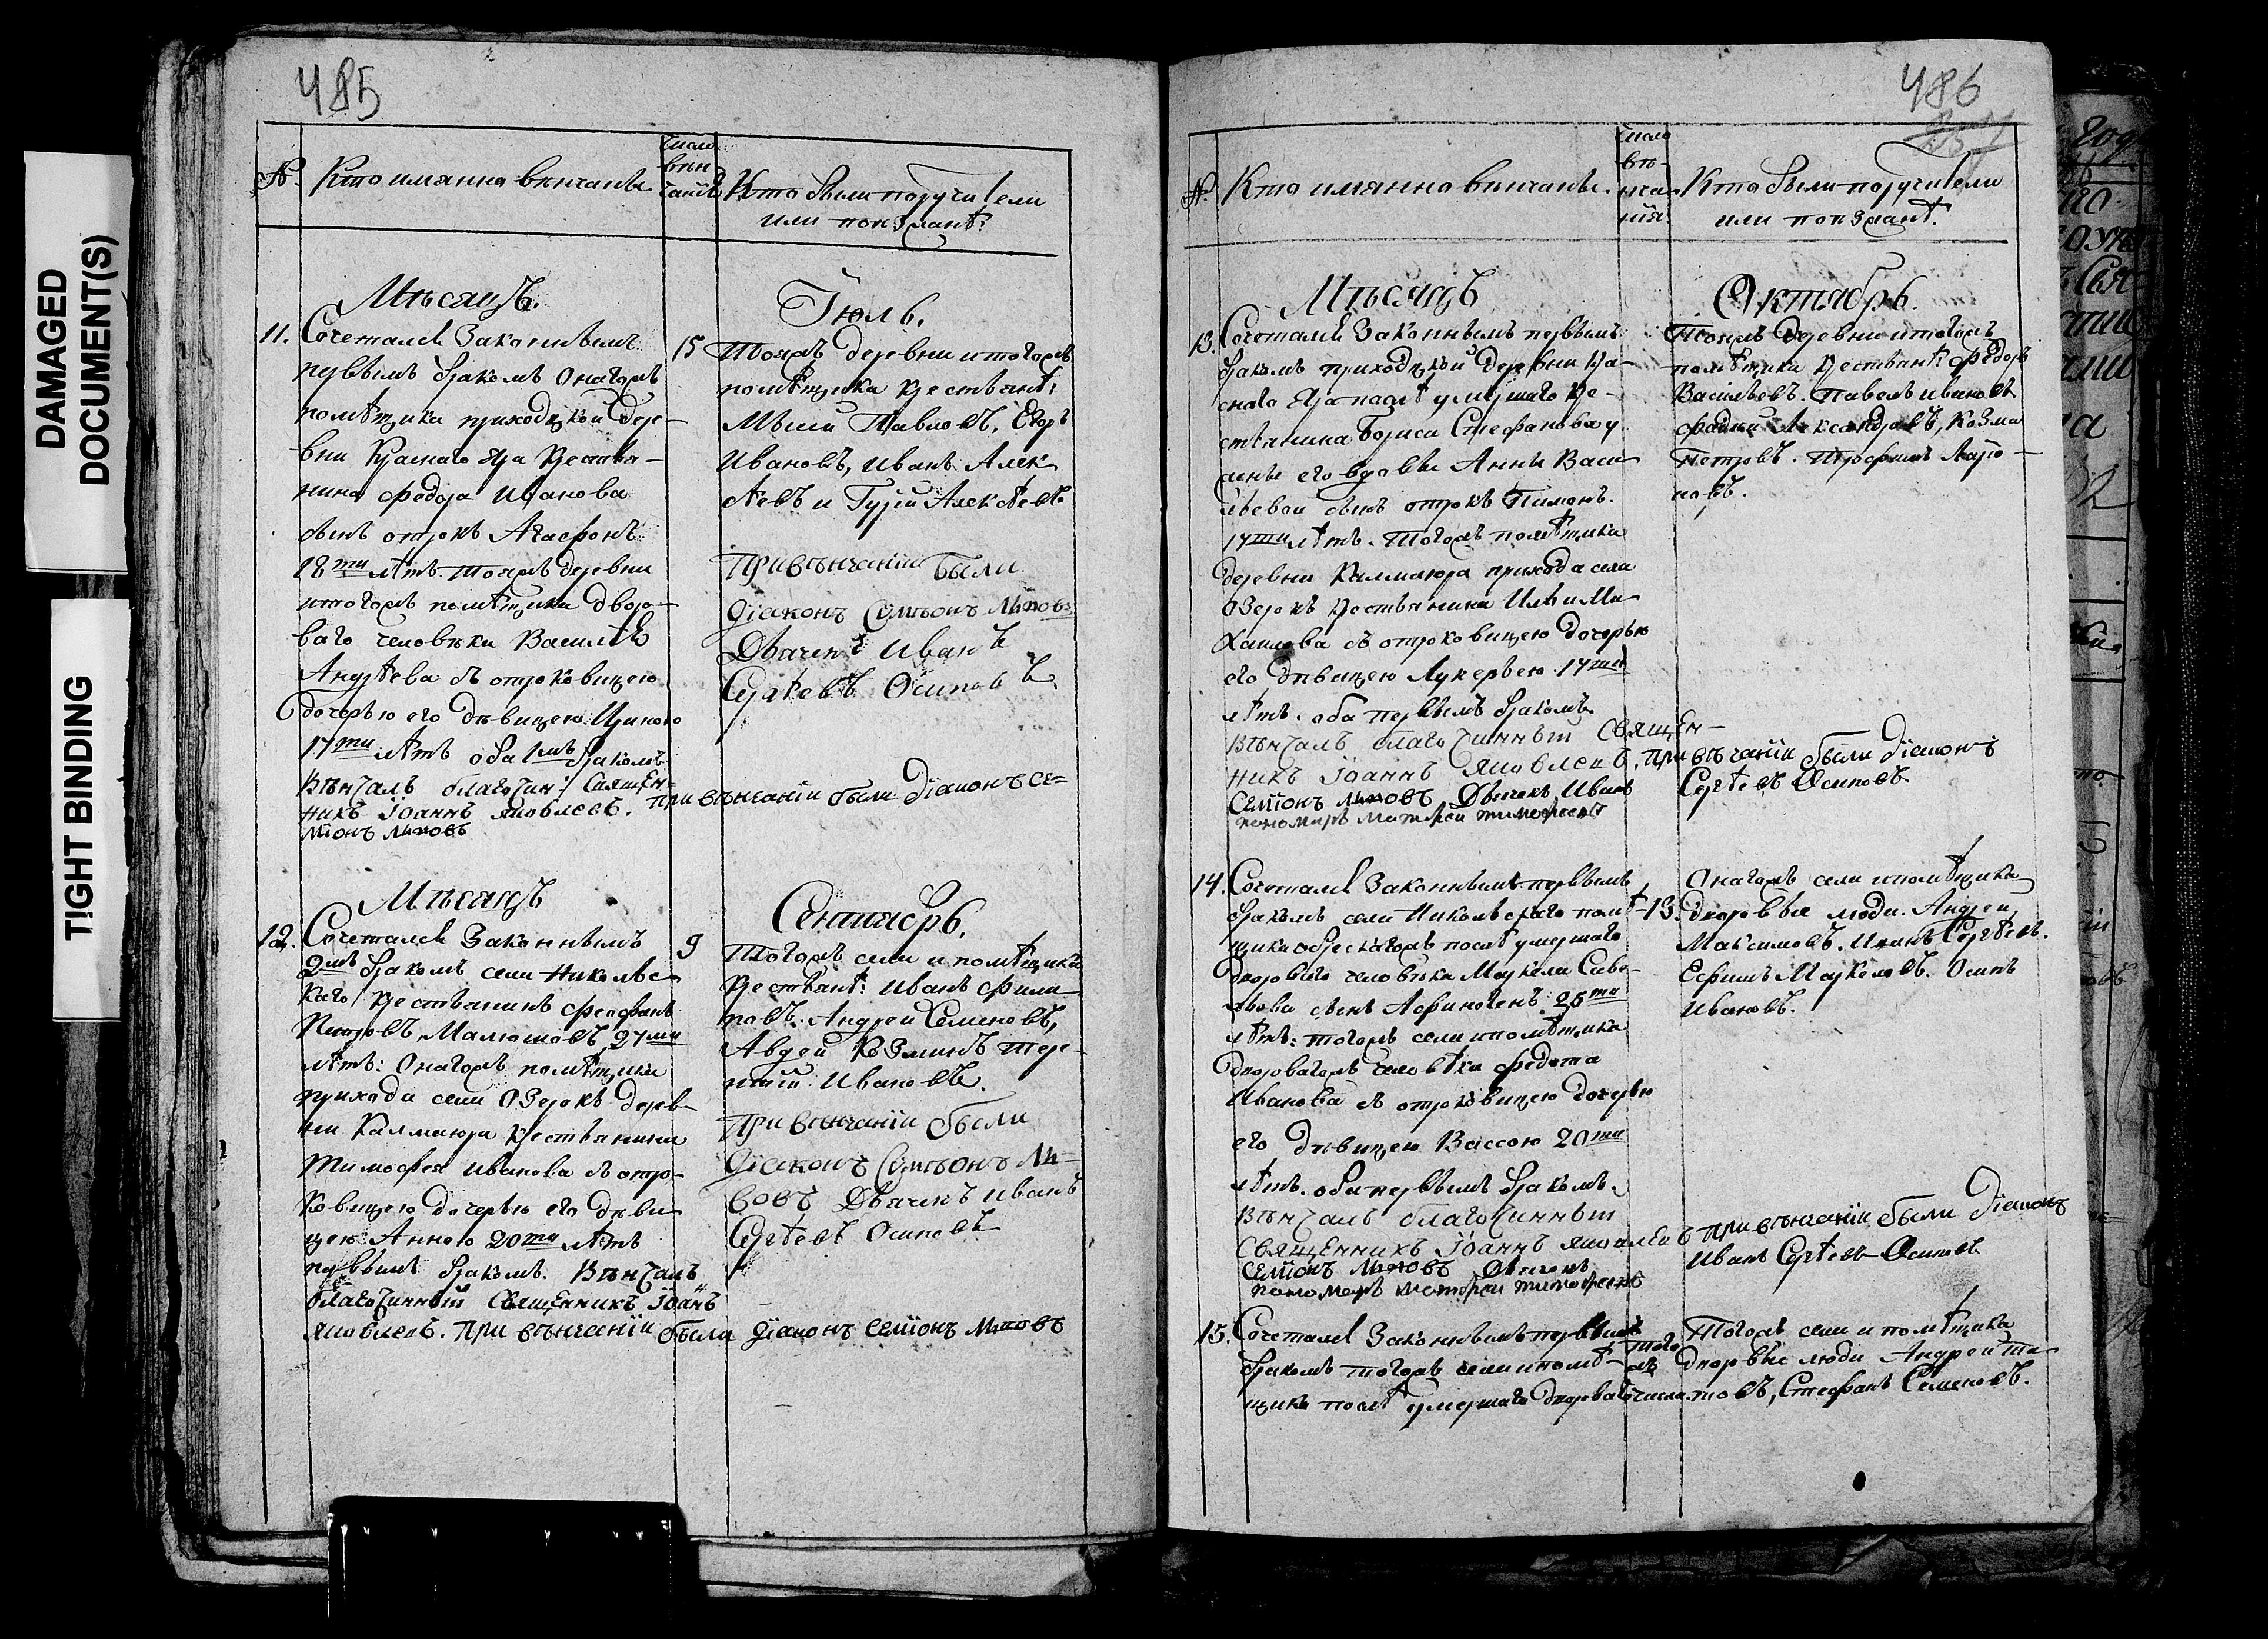 DAMAGED
DOCUMENT(S)
TIGHT BINDING
485
№
Кто имянно венчаны
число
вен
чанiя
Кто были поручители
или поезжанѣ:
Мѣсяцъ.
Iюль.
11. Сочетался законнымъ
первымъ бракомъ онагожъ
помѣщика приходской дере-
вни Краснаго Яра крестья-
нина Федора Иванова
сынъ отрокъ Агафонъ
18ти лѣтъ. Тояжъ деревни
и тогожъ помѣщика дворо-
ваго человѣка Василья
Андрѣева съ отроковицею
дочерью его дѣвицею Ириною
17ти лѣтъ оба 1мъ бракомъ
вѣнчалъ благочин: священ-
никъ Iоаннъ Яковлевъ. При вѣнчанiи были дiаконъ Се=
мiонъ
15
Тояжъ деревни и тогожъ
помѣщика крестьянѣ:
Павловъ, Егоръ
Ивановъ, Иванъ Алек
лѣевъ и Гурiй Алексѣевъ
При вѣнчанiи были
дiаконъ Сүмеонъ
Дьячекъ Иванъ
Сергѣевъ Осиповъ.
Мѣсяцъ
Сентябрь.
12. Сочетался законнымъ
2мъ бракомъ села Никольс
каго крестьянинъ Феофанъ
Петровъ Малюшовъ 27ми
лѣтъ: онагожъ помѣщика
прихода села Озерокъ дерев-
ни Калмаюра крестьянина
Тимофея Иванова съ отро-
ковицею дочерью его дѣви
цею Анною 20ти лѣтъ
первымъ бракомъ. Вѣнчалъ
благочинный священникъ Iоанъ
Яковлевъ. При вѣнчанiи были дiаконъ Семiонъ
9
Тогожъ села и помѣщика
крестьянѣ: Иванъ Фили
повъ. Андрей Семеновъ,
Авдей Козминъ Тере-
нтiй Ивановъ.
При вѣнчанiи были
дiаконъ Сүмеонъ
Дьячекъ Иванъ
Сергѣевъ Осиповъ
486
№
Кто имянно венчаны.
число
вѣ-
нча-
нiя.
Кто были поручители
или поезжанѣ.
Мѣсяцъ
Октябрь.
13. Сочетался законнымъ первымъ
бракомъ приходской деревни Кра-
снаго Яра послѣ умершаго кре-
стьянина Бориса Стефанова у
жены его вдовы Анны Васи
льевой сынъ отрокъ Пименъ.
17ти лѣтъ. Тогожъ помѣщика
деревни Калмаюра прихода села
Озерокъ крестьянина Ильи Ми
хаилова съ отроковицею дочерью
его дѣвицею Лукерьею 17ти
лѣтъ. оба первымъ бракомъ.
вѣнчалъ благочинный священ-
никъ Iоаннъ Яковлевъ. При вѣнчанiи были дiаконъ
Семiонъ Дьячекъ Иванъ
Сергѣевъ Осиповъ
пономарь Матфей Тимофеевъ
Тояжъ деревни и тогожъ
помѣщика крестьянѣ: Федоръ
Васильевъ. Павелъ Ивановъ
Фадей Александровъ, Козма
Петровъ. Трофимъ Ларiо-
новъ.
14. Сочетался законнымъ первымъ
бракомъ села Никольскаго помѣ-
щика послѣ умершаго
двороваго человѣка Маркела Саве-
льева сынъ Афиногенъ 26ти
лѣтъ: тогожъ села и помѣщика
двороваго человѣка Федота
Иванова съ отроковицею дочерью
его дѣвицею Вассою 20ти
лѣтъ. оба первымъ бракомъ.
вѣнчалъ благочинный
священникъ Iоаннъ Яковлевъ при вѣнчанiи были дiаконъ
Семiонъ Дьячекъ
Иванъ Сергѣевъ Осиповъ
пономарь Матфей Тимофеевъ
13.
Онагожъ села и помѣщика
дворовые люди. Андрей
Максимовъ. Иванъ Сергѣевъ.
Ефимъ Маркеловъ. Осипъ
Ивановъ.
15. Сочетался законнымъ первымъ
бракомъ тогожъ села и помѣ-
щика послѣ умершаго дворова
того
жъ
числа
Тогожъ села и помѣщика
дворовые люди Андрей Ти
товъ, Стефанъ Семеновъ.